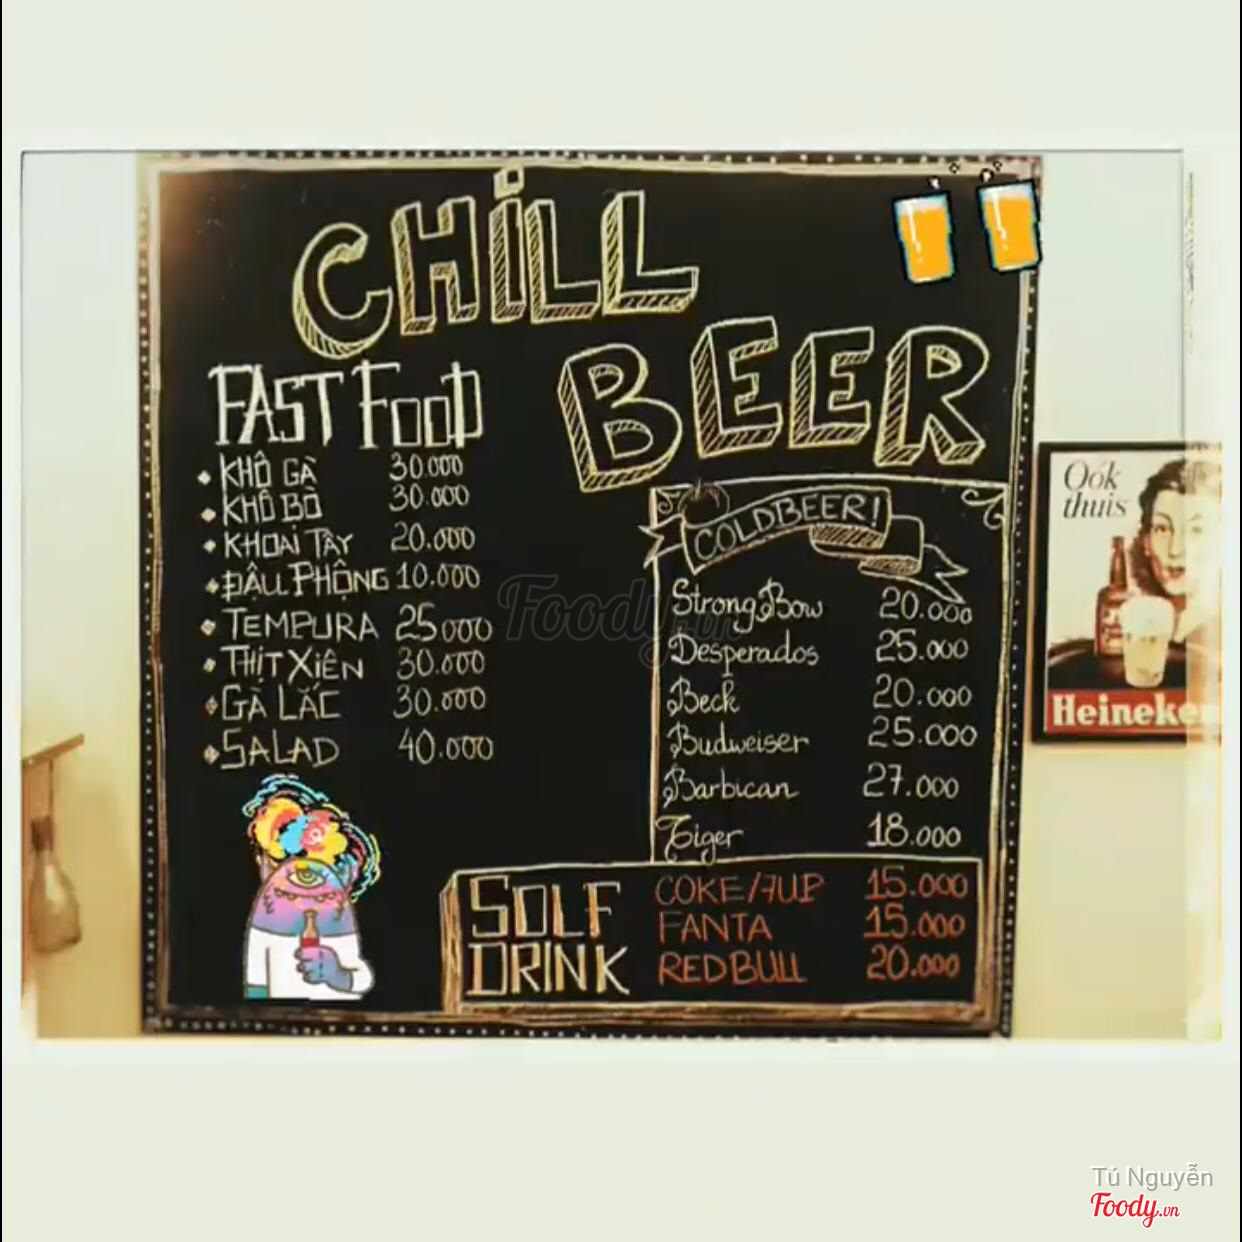 CHILL
BEER
FAST FOOD
KHÔ GÀ 30.000
KHÔ BÒ 30.000
KHOAI TÂY 20.000
ĐẬU PHỘNG 10.000
TEMPURA 25000
THỊT XIÊN 30.000
GÀ LẮC 30.000
SALAD 40.000
COLDBEER!
StrongBow 20.000
Desperados 25.000
Beck 20.000
Budweiser 25.000
Barbican 27.000
Tiger 18.000
SOLF
DRINK
COKE/7UP 15.000
FANTA 15.000
REDBULL 20.000
Oók
thuis
Heineke
Foody.vn
Tú Nguyễn
Foody.vn